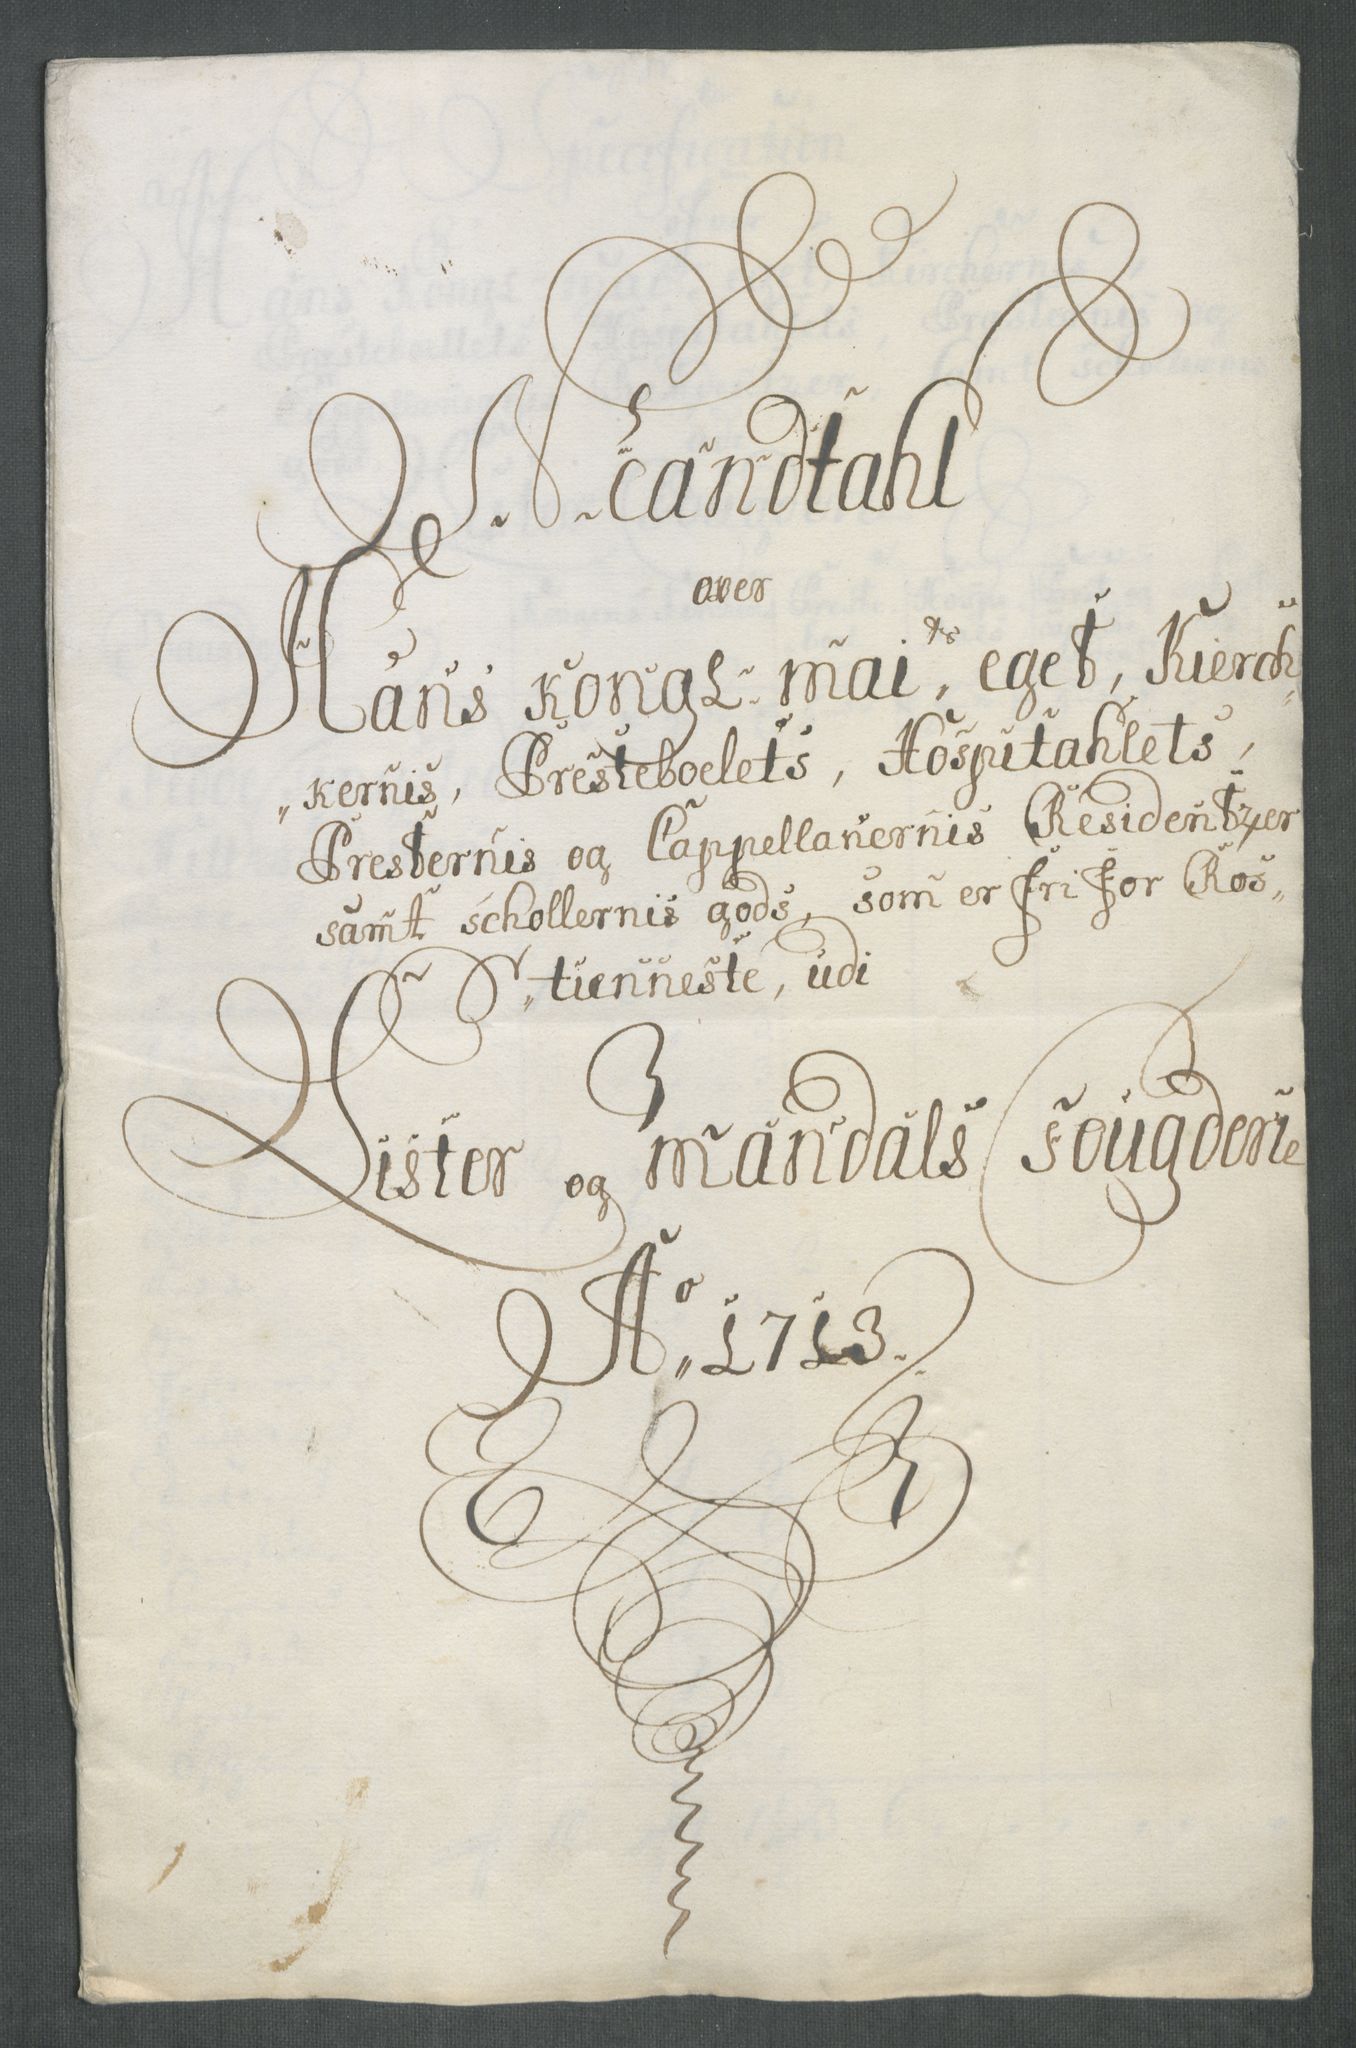 Mandtahl
over
Hans Kongl. Mai.ts eget, Kierch„
„kernis, Presteboelets, Hospitahlets,
Presternis og Cappellanernis Residentzer
samt schollernis gods, som er fri for Ros„
„tienneste, udi
Lister og Mandals Fougderie
Ao„ 1713.